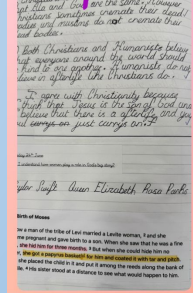 are the same. However
Christians sometimes cremate their dead
bodies and muslims do not cremate their
dead bodies.
Both Christians and Humanists believe
that everyone around the world should
be kind to one another. Humanists do not
believe in afterlife like Christians do.
I agree with Christianity because
I think that Jesus is the son of God and
believe that there is a afterlife and
just carrys on.
I understand how women play a role in
Taylor Swift Queen Elizabeth Rosa Parks
Birth of Moses
Now a man of the tribe of Levi married a Levite woman, 2 and she
became pregnant and gave birth to a son. When she saw that he was a fine
child, she hid him for three months. 3 But when she could hide him no
longer, she got a papyrus basket for him and coated it with tar and pitch.
Then she placed the child in it and put it among the reeds along the bank of
the Nile. 4 His sister stood at a distance to see what would happen to him.